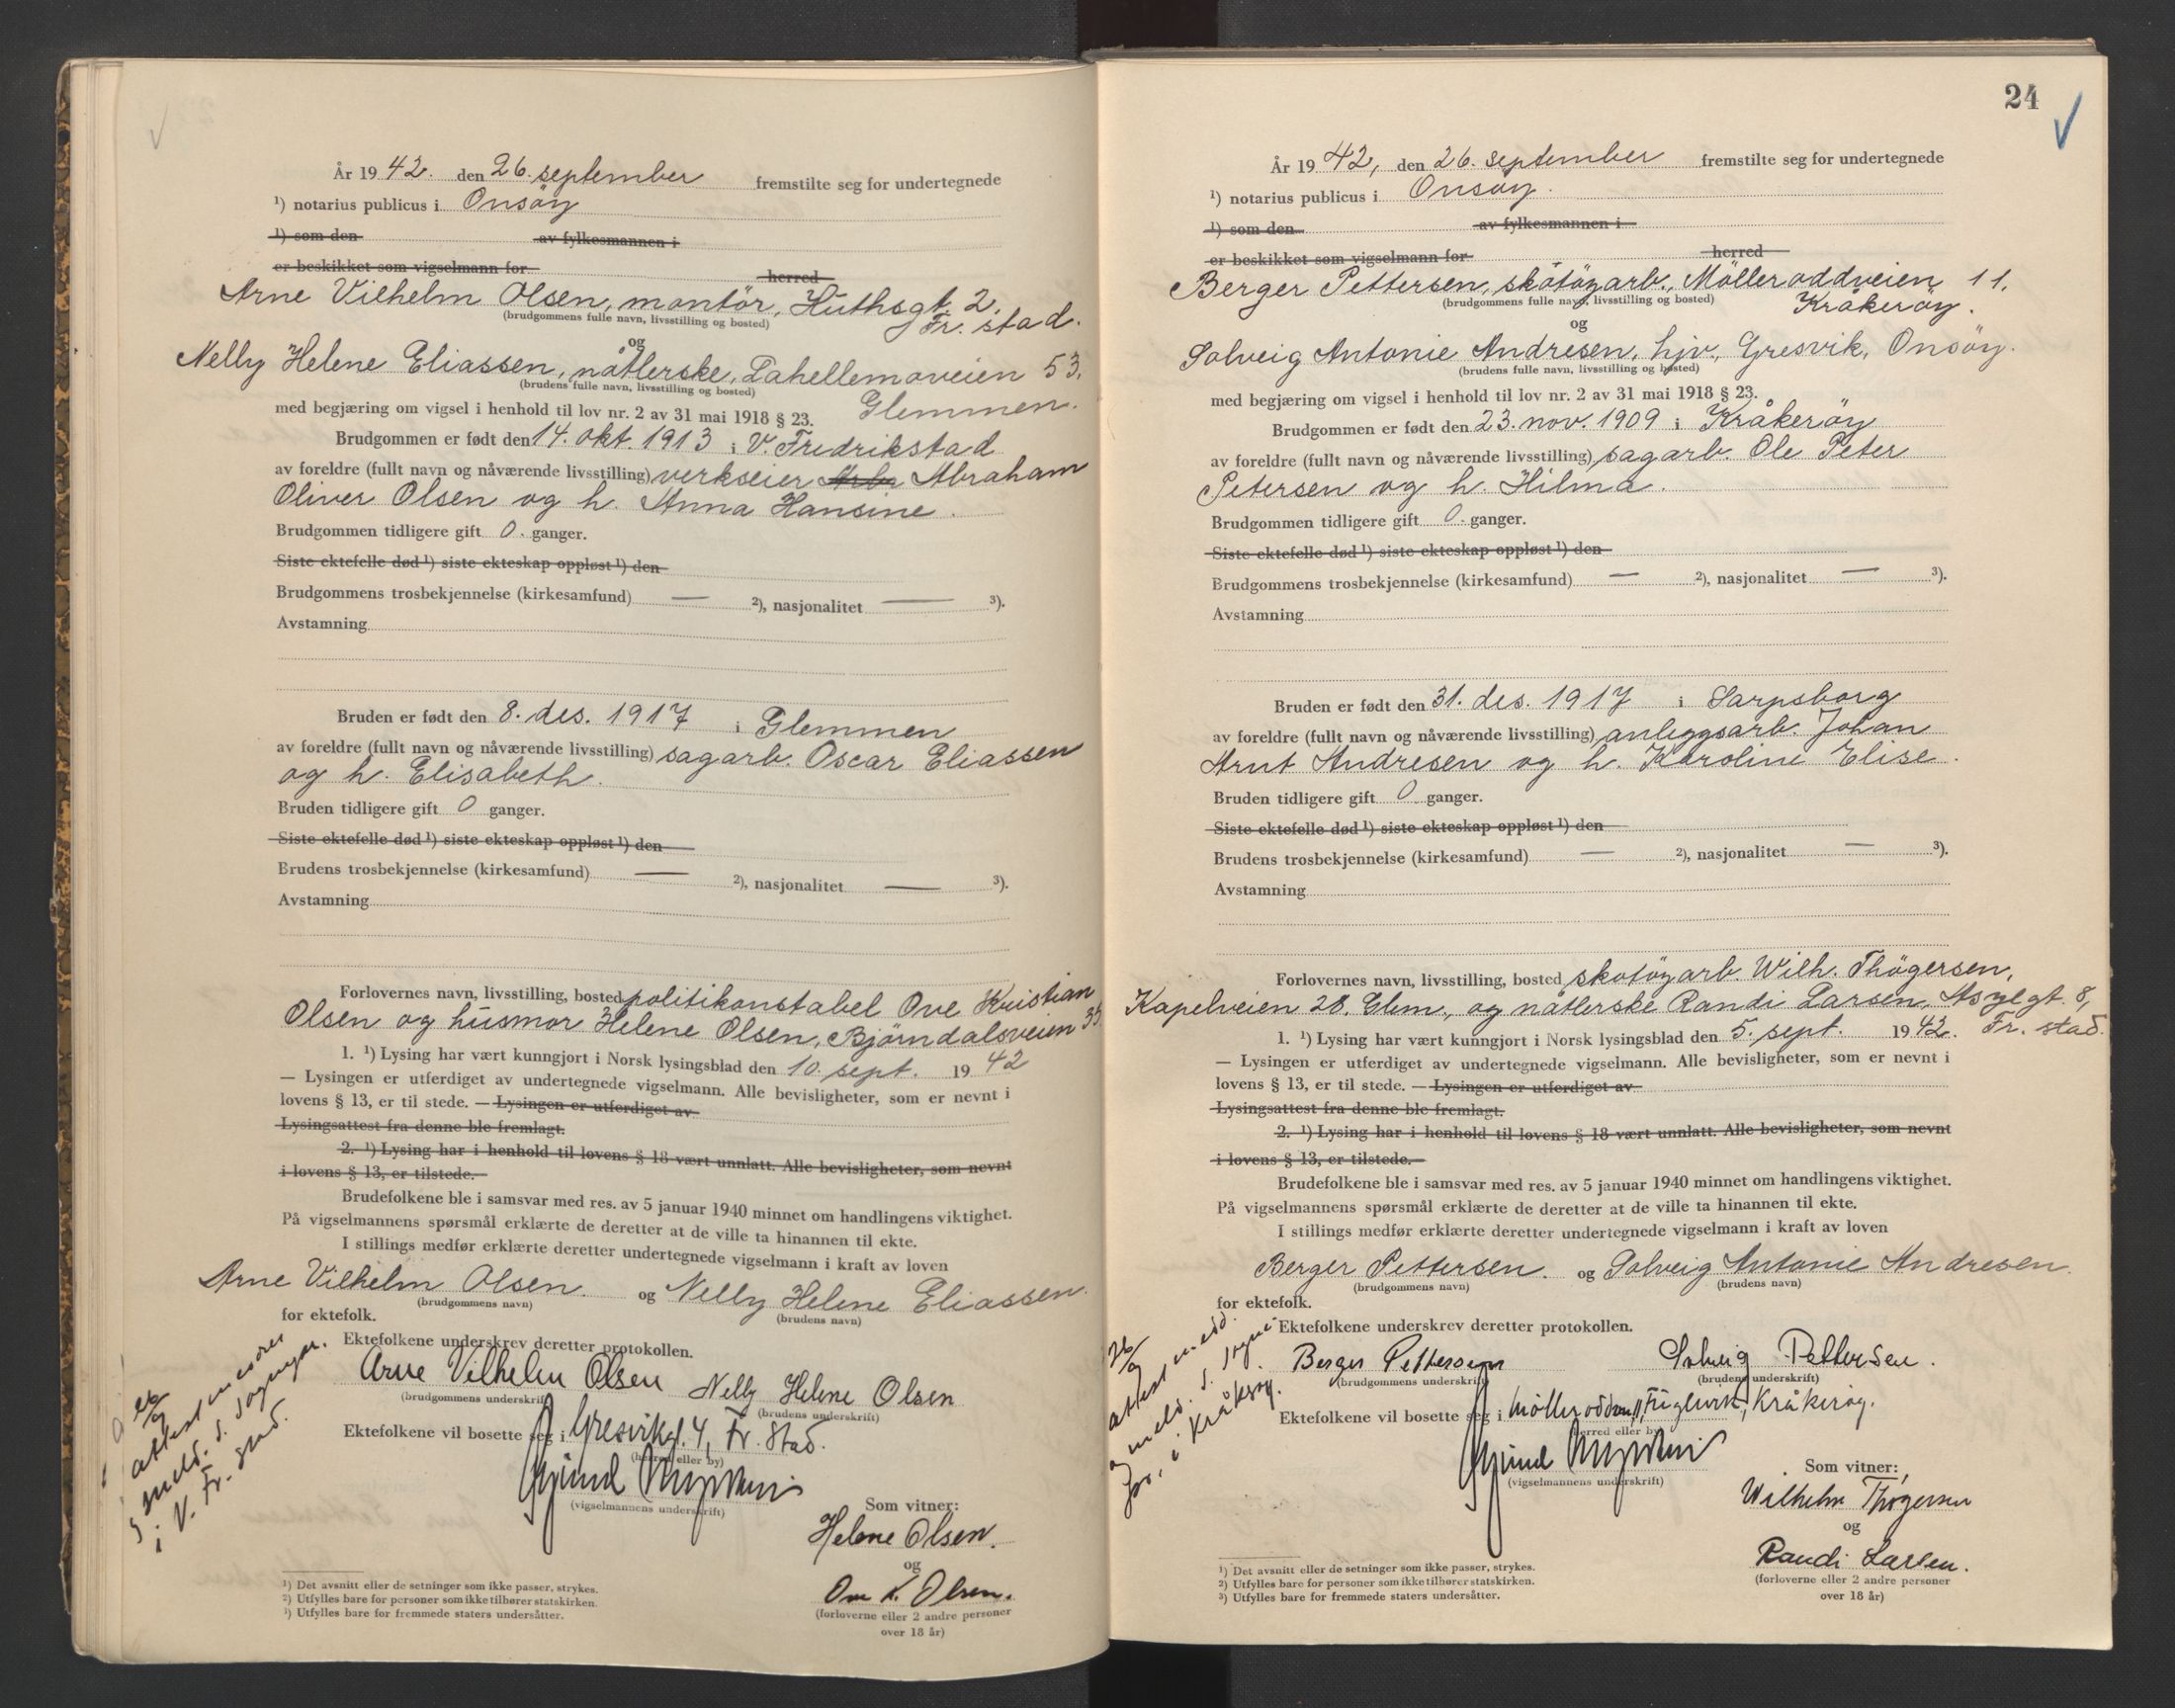 År 1942. den 26. september fremstilte seg for undertegnede
¹) notarius publicus i Onsöy
¹) som den av fylkesmannen i
er beskikket som vigselmann for herred
Arne Vilhelm Olsen, montör, Huthsgt. 2,
(brudgommens fulle navn, livsstilling og bosted) Fr. stad.
og
Nelly Helene Eliassen, nåtlerske, Lahellemoveien 53,
(brudens fulle navn, livsstilling og bosted)
med begjæring om vigsel i henhold til lov nr. 2 av 31 mai 1918 § 23. Glemmen.
Brudgommen er født den 14. okt. 1913 i V. Fredrikstad
av foreldre (fullt navn og nåværende livsstilling) verkseier Abraham
Oliver Olsen og h. Anna Hansine.
Brudgommen tidligere gift 0. ganger.
Siste ektefelle død ¹) siste ekteskap oppløst ¹) den
Brudgommens trosbekjennelse (kirkesamfund) — ²), nasjonalitet — ³).
Avstamning
Bruden er født den 8. des. 1917 i Glemmen
av foreldre (fullt navn og nåværende livsstilling) sagarb. Oscar Eliassen
og h. Elisabeth.
Bruden tidligere gift 0 ganger.
Siste ektefelle død ¹) siste ekteskap oppløst ¹) den
Brudens trosbekjennelse (kirkesamfund) — ²), nasjonalitet — ³).
Avstamning
Forlovernes navn, livsstilling, bosted politikonstabel Ove Kristian
Olsen og husmor Helene Olsen, Bjørndalsveien
1. ¹) Lysing har vært kunngjort i Norsk lysingsblad den 10. sept. 1942
— Lysingen er utferdiget av undertegnede vigselmann. Alle bevisligheter, som er nevnt i
lovens § 13, er til stede. — Lysingen er utferdiget av
Lysingsattest fra denne ble fremlagt.
2. ¹) Lysing har i henhold til lovens § 18 vært unnlatt. Alle bevisligheter, som nevnt
i lovens § 13, er tilstede.
Brudefolkene ble i samsvar med res. av 5 januar 1940 minnet om handlingens viktighet.
På vigselmannens spørsmål erklærte de deretter at de ville ta hinannen til ekte.
I stillings medfør erklærte deretter undertegnede vigselmann i kraft av loven
Arne Vilhelm Olsen. og Nelly Helene Eliassen.
(brudgommens navn) (brudens navn)
for ektefolk.
Ektefolkene underskrev deretter protokollen.
Arne Vilhelm Olsen Nelly Helene Olsen
(brudgommens underskrift) (brudens underskrift)
Ektefolkene vil bosette seg i Gresvikgt. 4, Fr. stad.
(herred eller by)
(vigselmannens underskrift)
Som vitner:
Helene Olsen.
og
Ove K. Olsen.
(forloverne eller 2 andre personer
over 18 år)
26/9
i V. Fr. stad.
¹) Det avsnitt eller de setninger som ikke passer, strykes.
²) Utfylles bare for personer som ikke tilhører statskirken.
³) Utfylles bare for fremmede staters undersåtter.
24
År 1942, den 26. september fremstilte seg for undertegnede
¹) notarius publicus i Onsöy.
¹) som den av fylkesmannen i
er beskikket som vigselmann for herred
Berger Pettersen, skotöyarb., Mölleroddveien 11,
(brudgommens fulle navn, livsstilling og bosted) Kråkeröy.
og
Solveig Antonie Andresen, hjv., Gresvik, Onsöy.
(brudens fulle navn, livsstilling og bosted)
med begjæring om vigsel i henhold til lov nr. 2 av 31 mai 1918 § 23.
Brudgommen er født den 23. nov. 1909 i Kråkeröy
av foreldre (fullt navn og nåværende livsstilling) sagarb. Ole Peter
Petersen og h. Hilma.
Brudgommen tidligere gift 0. ganger.
Siste ektefelle død ¹) siste ekteskap oppløst ¹) den
Brudgommens trosbekjennelse (kirkesamfund) — ²), nasjonalitet — ³).
Avstamning
Bruden er født den 31. des. 1917 i Sarpsborg
av foreldre (fullt navn og nåværende livsstilling) anleggsarb. Johan
Arnt Andresen og h. Karoline Elise.
Bruden tidligere gift 0. ganger.
Siste ektefelle død ¹) siste ekteskap oppløst ¹) den
Brudens trosbekjennelse (kirkesamfund) — ²), nasjonalitet — ³).
Avstamning
Forlovernes navn, livsstilling, bosted skotöyarb. Wilh. Thögersen,
Kapelveien 28. Glem., og nåtlerske Randi Larsen, Asylgt. 8,
1. ¹) Lysing har vært kunngjort i Norsk lysingsblad den 5. sept. 1942. Fr. stad.
— Lysingen er utferdiget av undertegnede vigselmann. Alle bevisligheter, som er nevnt i
lovens § 13, er til stede. — Lysingen er utferdiget av
Lysingsattest fra denne ble fremlagt.
2. ¹) Lysing har i henhold til lovens § 18 vært unnlatt. Alle bevisligheter, som nevnt
i lovens § 13, er tilstede.
Brudefolkene ble i samsvar med res. av 5 januar 1940 minnet om handlingens viktighet.
På vigselmannens spørsmål erklærte de deretter at de ville ta hinannen til ekte.
I stillings medfør erklærte deretter undertegnede vigselmann i kraft av loven
Berger Pettersen. og Solveig Antonie Andresen.
(brudgommens navn) (brudens navn)
for ektefolk.
Ektefolkene underskrev deretter protokollen.
Berger Pettersen Solveig Pettersen.
(brudgommens underskrift) (brudens underskrift)
Ektefolkene vil bosette seg i Kråkeröy.
(herred eller by)
(vigselmannens underskrift)
Som vitner:
Wilhelm Thögersen
og
Randi Larsen.
(forloverne eller 2 andre personer
over 18 år)
26/9
¹) Det avsnitt eller de setninger som ikke passer, strykes.
²) Utfylles bare for personer som ikke tilhører statskirken.
³) Utfylles bare for fremmede staters undersåtter.